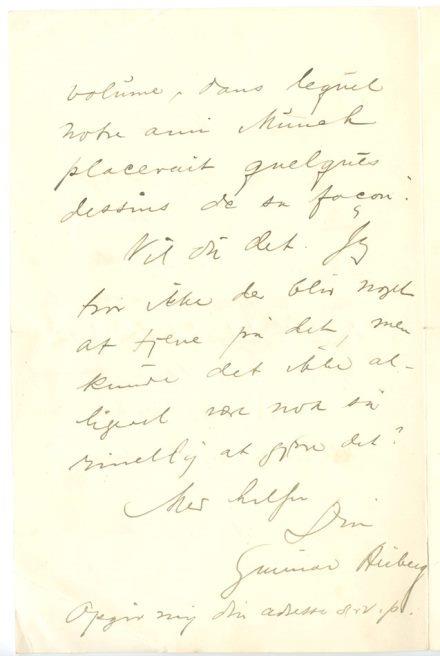 volume, dans lequel
notre ami Münch
placerait quelques
dessins de sa façon".
Vil du det. Jeg
tror ikke der blir noget
at tjene på det, men
kunde det ikke al-
ligevel være nok så
rimelig at gjøre det?
Med hilsen
Din
Gunnar Heiberg
Opgiv mig din adresse s.v.p.